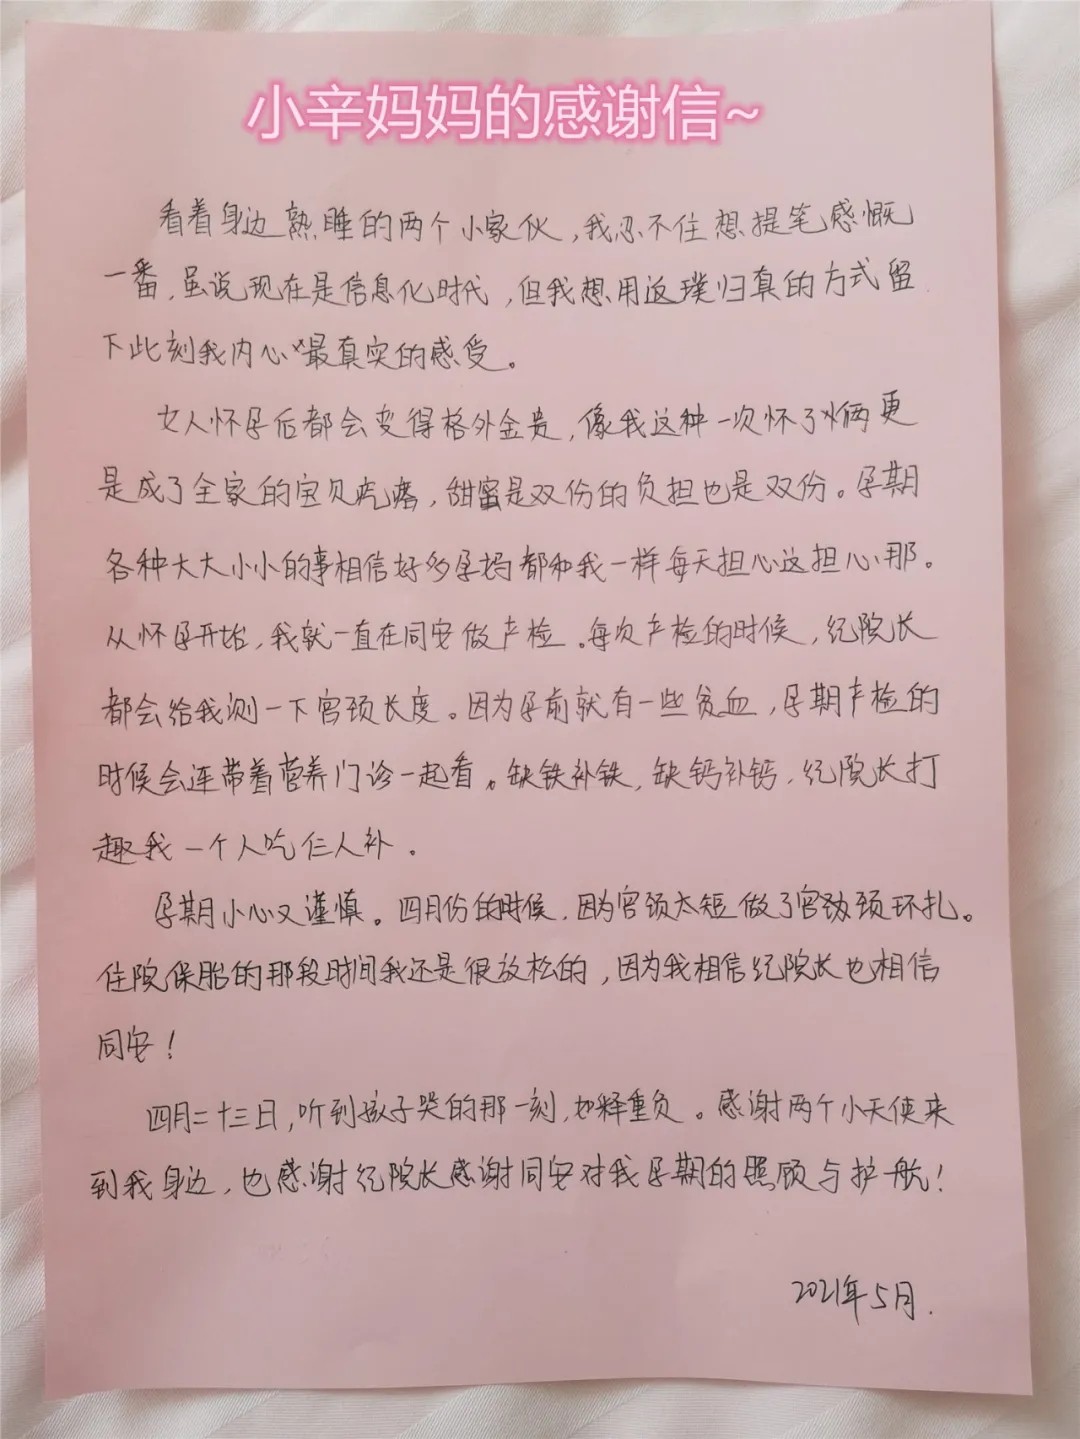 小辛妈妈的感谢信~
看着身边熟睡的两个小家伙，我忍不住想提笔感慨
一番，虽说现在是信息化时代，但我想用返璞归真的方式留
下此刻我内心最真实的感受。
女人怀孕后都会变得格外金贵，像我这种一次怀了俩更
是成了全家的宝贝疙瘩，甜蜜是双份的负担也是双份。孕期
各种大大小小的事相信好多孕妈都和我一样每天担心这担心那。
从怀孕开始，我就一直在同安做产检。每次产检的时候，纪院长
都会给我测一下宫颈长度。因为孕前就有一些贫血，孕期产检的
时候会连带着营养门诊一起看。缺铁补铁，缺钙补钙，纪院长打
趣我一个人吃仨人补．
孕期小心又谨慎。四月份的时候，因为宫颈太短做了宫颈环扎。
住院保胎的那段时间我还是很放松的，因为我相信纪院长也相信
同安！
四月二十三日，听到孩子哭的那一刻，如释重负。感谢两个小天使来
到我身边，也感谢纪院长感谢同安对我孕期的照顾与护航！
2021年5月.